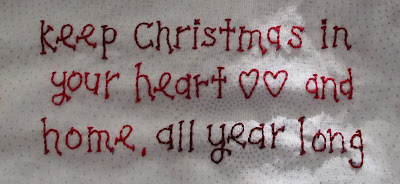 keep Christmas in
your heart ♡♡ and
home, all year long